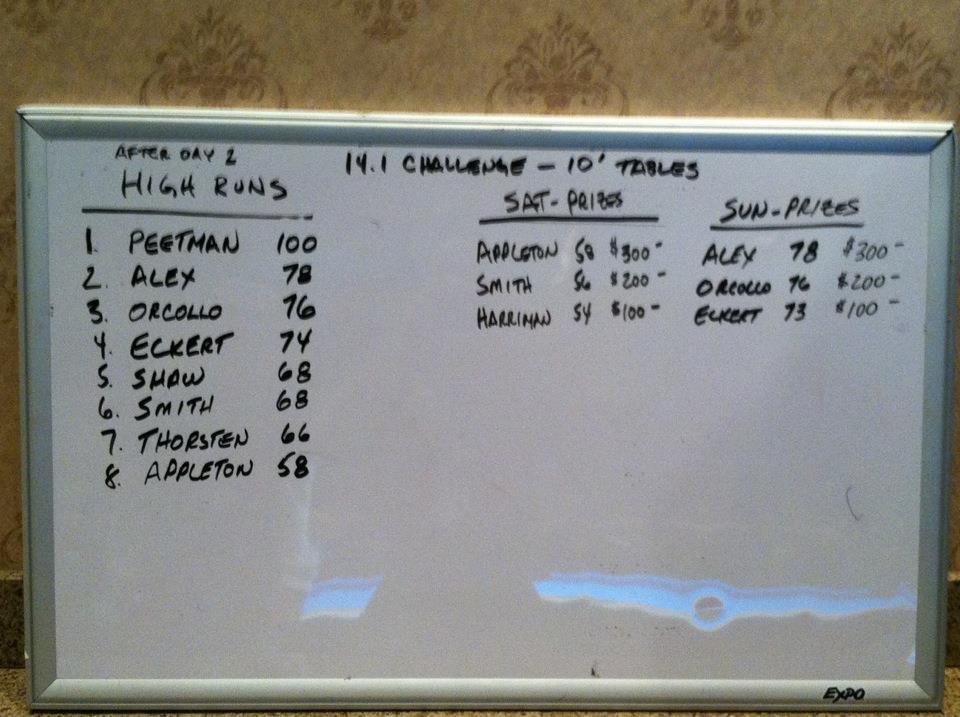 AFTER DAY 2
HIGH RUNS
1. PEETMAN 100
2. ALEX 78
3. ORCOLLO 76
4. ECKERT 74
5. SHAW 68
6. SMITH 68
7. THORSTEN 66
8. APPLETON 58
14.1 CHALLENGE - 10' TABLES
SAT-PRIZES
APPLETON 58 $300-
SMITH 56 $200-
HARRIMAN 54 $100-
SUN-PRIZES
ALEX 78 $300-
ORCOLLO 76 $200-
ECKERT 73 $100-
EXPO